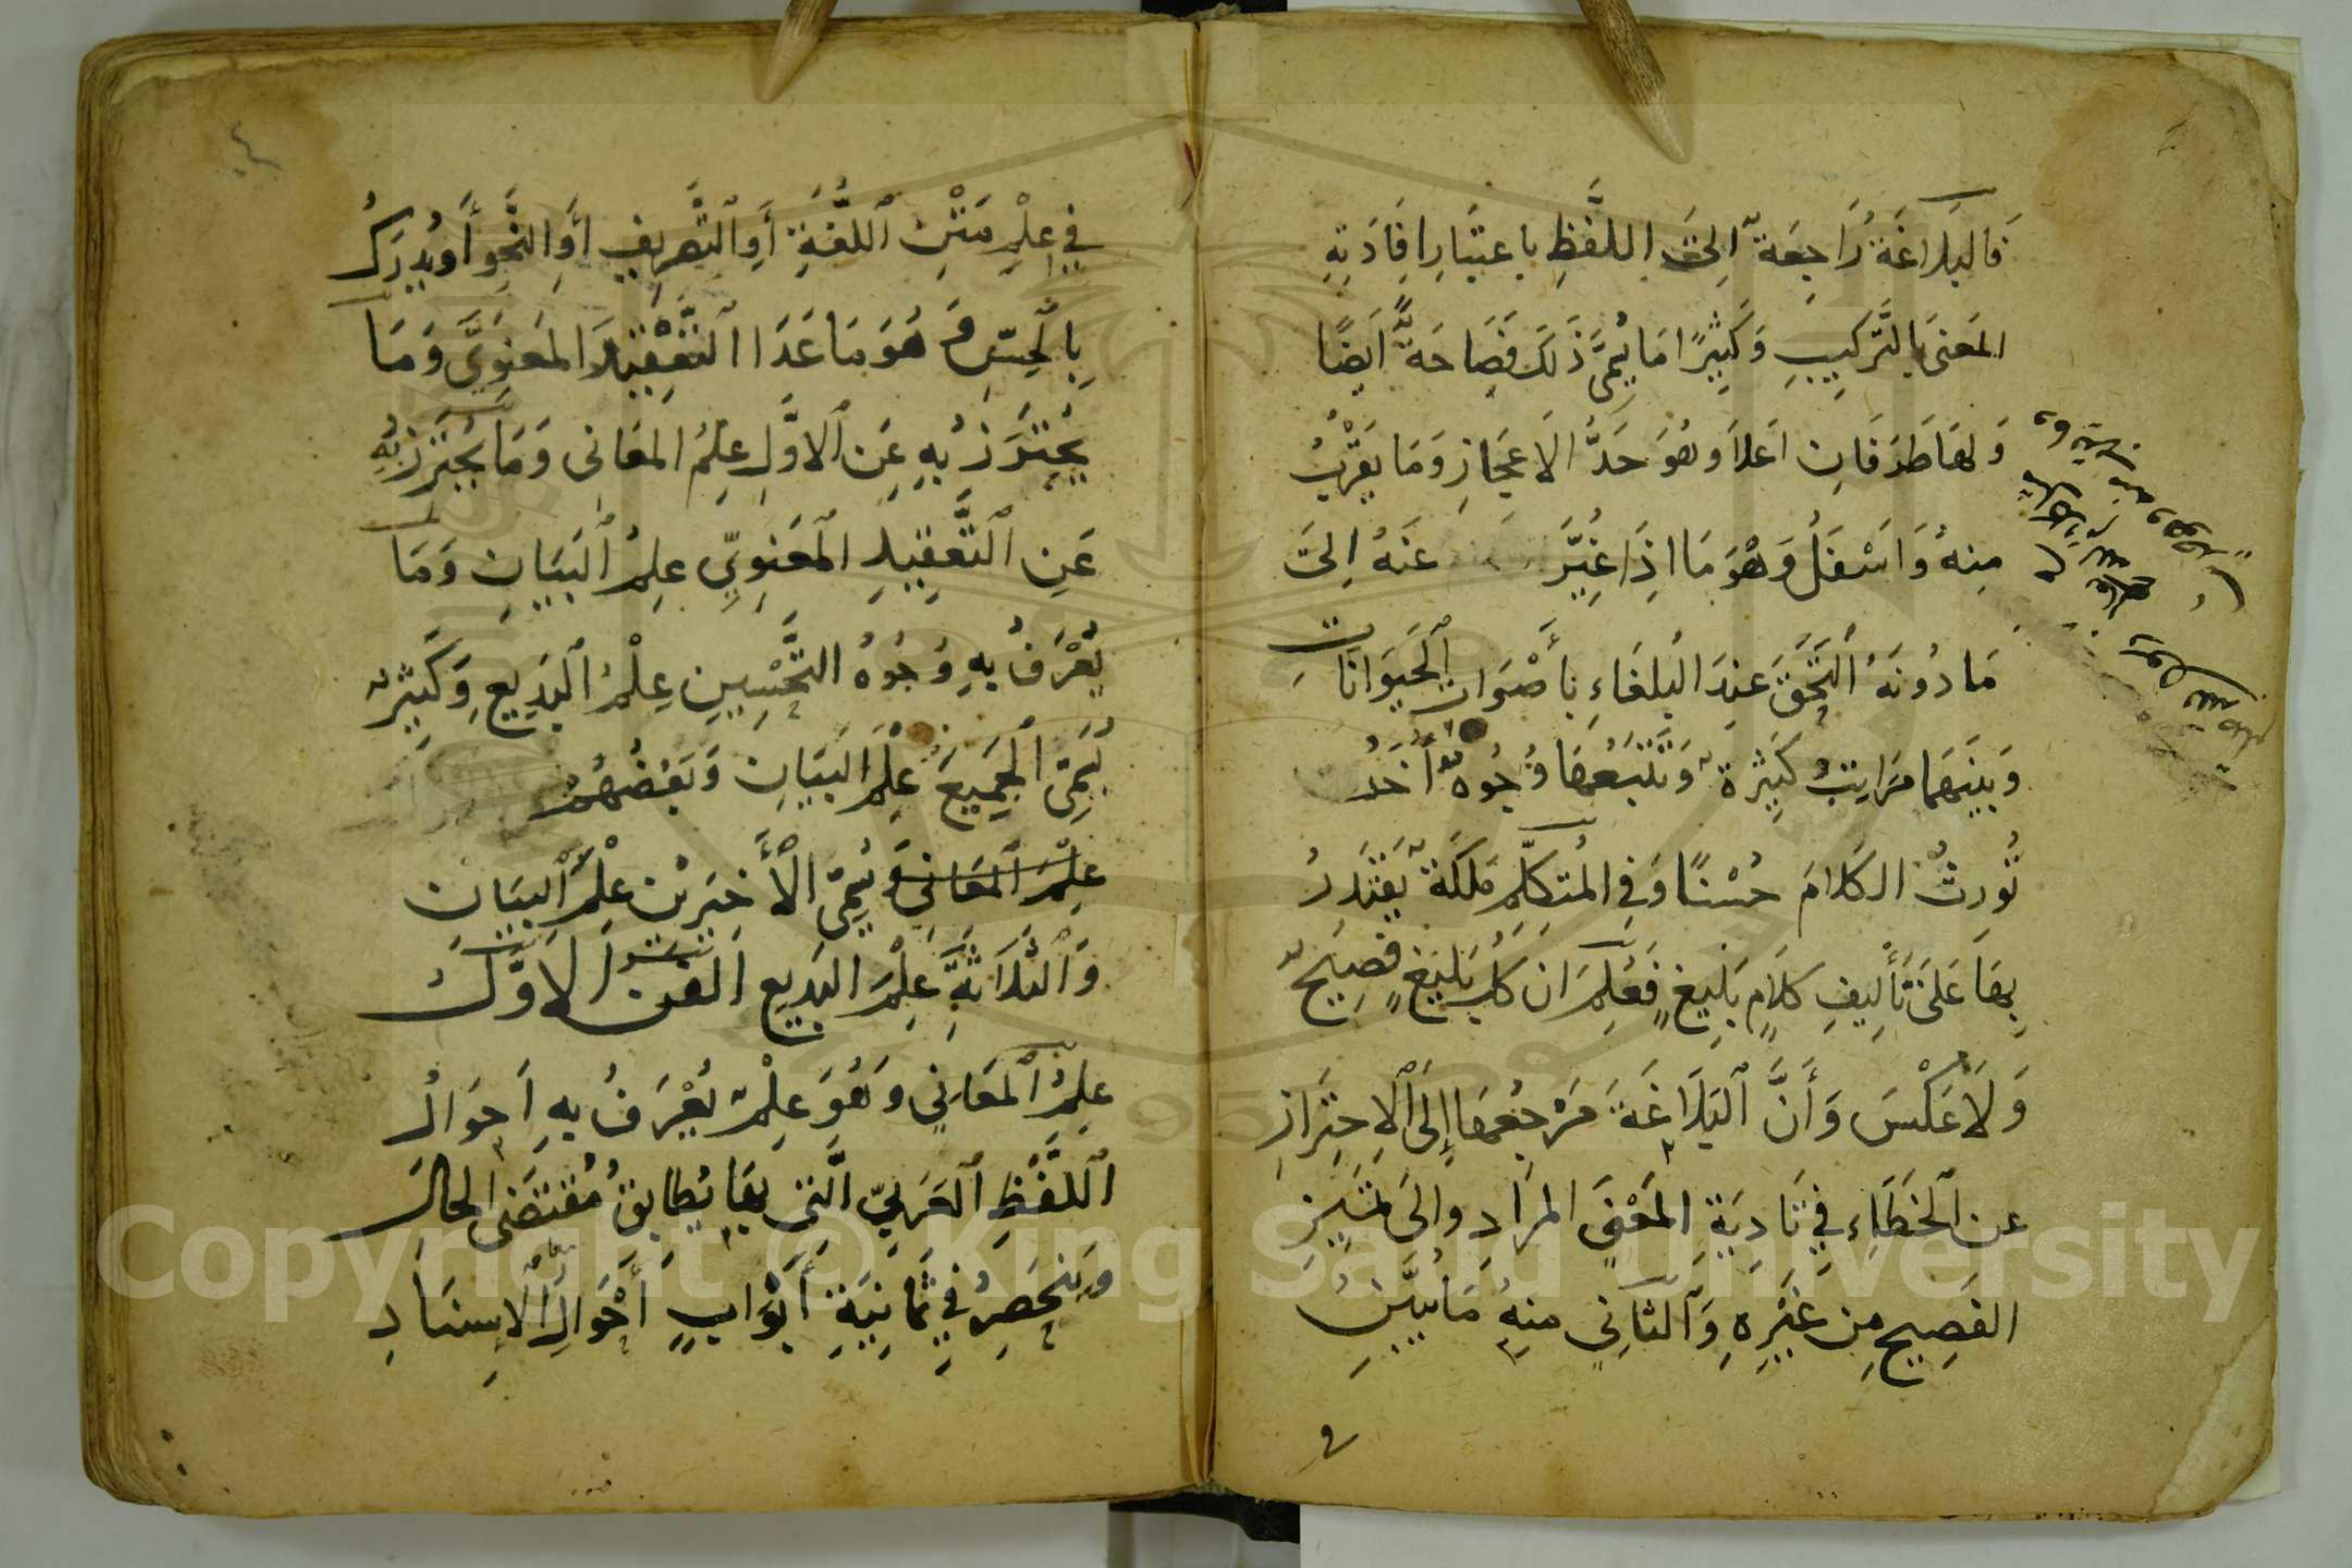 فَالبَلَاغَةُ رَاجِعَةٌ اِلىَ اللَّفْظِ بِاعتِبَارِ اِفَادَتِهِ
المَعنَى بِالتَّركِيبِ وَكَثِيرًا مَا يُسَمَّى ذَلِكَ فَصَاحَةً اَيضًا
وَلهَا طَرَفَانِ اَعلَا وَهُوَ حَدُّ الاَعجَازِ وَمَا يَقرُبُ
مِنهُ وَاَسْفَلُ وَهْوَ مَا اِذَا غُيِّرَ عَنهُ اِلىَ
مَا دُونَهُ اُلتَحَقَ عِندَ البُلَغَاءِ بِأَصْوَاتِ الحَيَوَانَاتِ
وَبَينَهمَا مَرَاتِبُ كَثِيرَةٌ وَتَتْبَعُهَا وُجُوهٌ أُخَرُ
تُورِثُ الكَلَامَ حُسْنًا وَفِي المُتَكَلِّمِ مَلَكَةٌ يَقتَدِرُ
بِهَا عَلَى تَأْلِيفِ كَلَامٍ بَلِيغٍ فَعُلِمَ اَن كُلَّ بَلِيغٍ فَصِيحٌ
وَلَا عَكْسَ وَأَنَّ البَلَاغَةَ مَرْجِعُهَا إِلَى الاِحتِرَازِ
عن الخَطَاءِ فِي تَادِيَةِ المَعْنَى المرَادِ وَالَى تَمْيِيزِ
الفَصِيحِ مِن غَيْرِهِ وَالثَانِي مِنهُ مَا يُبَيَّنُ
في عِلْمِ مَتْنِ اللُّغَةِ أَوِ التَّصْرِيفِ أَوِ النَّحْوِ أَو يُدرَكُ
بِالحِسِّ وَهُوَ مَا عَدَا التَعْقِيدَ المَعنَوِيَّ وَمَا
يُحتَرَزُ بِهِ عَنِ الاَوَّلِ عِلمُ المَعَانِي وَمَا يُحتَرَزُ بِهِ
عَنِ التَّعقِيدِ المَعنَوِيِّ عِلمُ البَيَانِ وَمَا
يُعْرَفُ بِهِ وُجُوهُ التَّحْسِينِ عِلْمُ البَدِيعِ وَكَثِيرٌ
يُسَمِّى الجَمِيعَ عِلْمَ البَيَانِ وَبَعْضُهُمْ
عِلْمَ المعَانِي وَيُسَمِّى الأَخِيرَيْنِ عِلْمَ البَيَانِ
وَالثَلَاثَةَ عِلْمَ البَدِيعِ الفن الاَوَّلُ
عِلمُ المَعَانِي وَهُوَ عِلْمٌ يُعْرَفُ بِهِ اَحوَالُ
اللَّفْظِ العَرَبِيِّ الَّتِي بِهَا يُطَابِقُ مُقتَضَى الحَالِ
وَيَنحَصِرُ فِي ثَمَانِيَةِ أَبْوَابٍ أَحْوَالِ الاِسنَادِ
Copyright © King Saud University